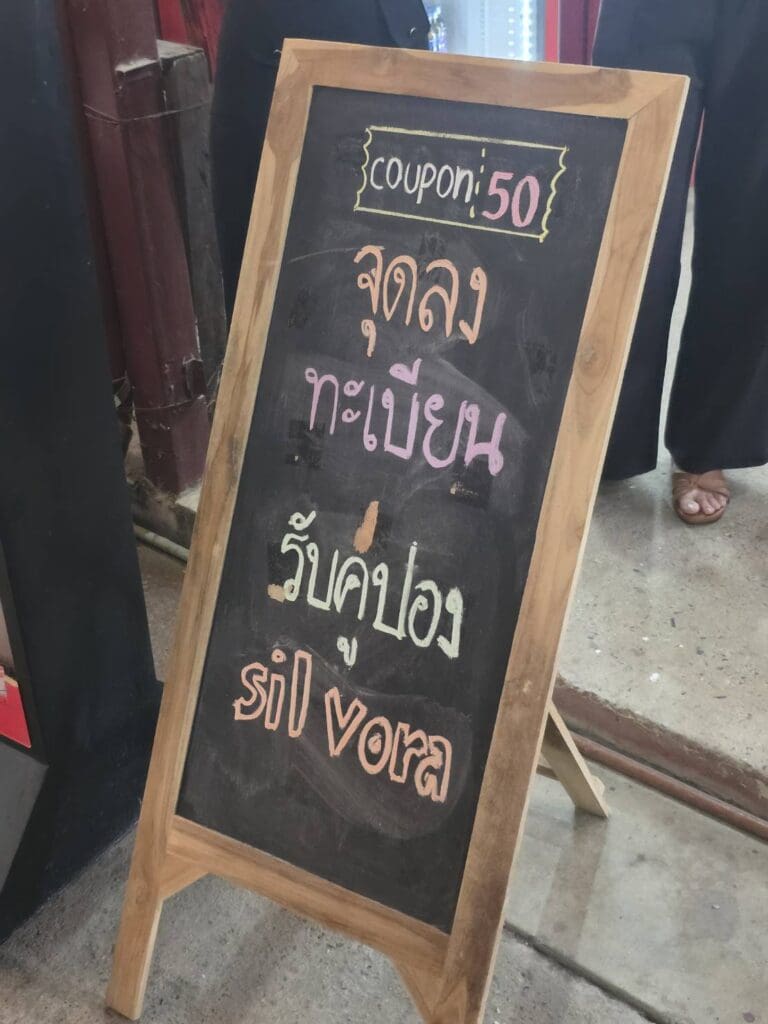 coupon 50
จุดลง
ทะเบียน
รับคูปอง
sil vora